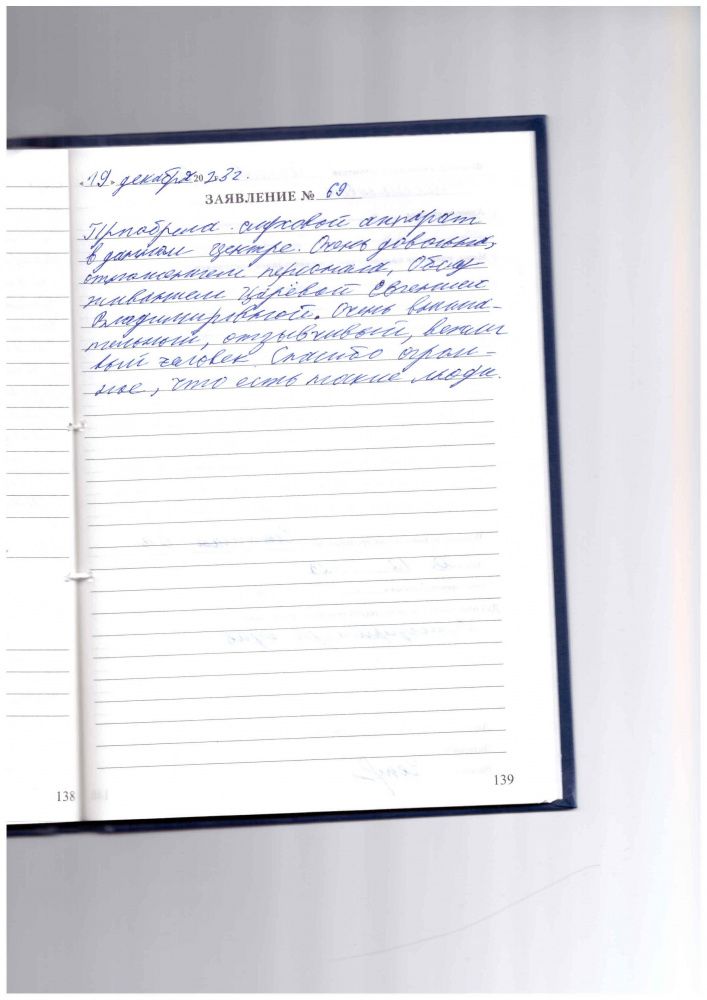 «19» декабря 2023г.
ЗАЯВЛЕНИЕ № 69
Приобрела слуховой аппарат
в данном центре. Очень довольна,
отношением персонала, Обслу
живанием Царёвой Евгенией
Владимировной. Очень внима-
тельный, отзывчивый, вежли
вый человек. Спасибо огром-
ное, что есть такие люди.
138
139